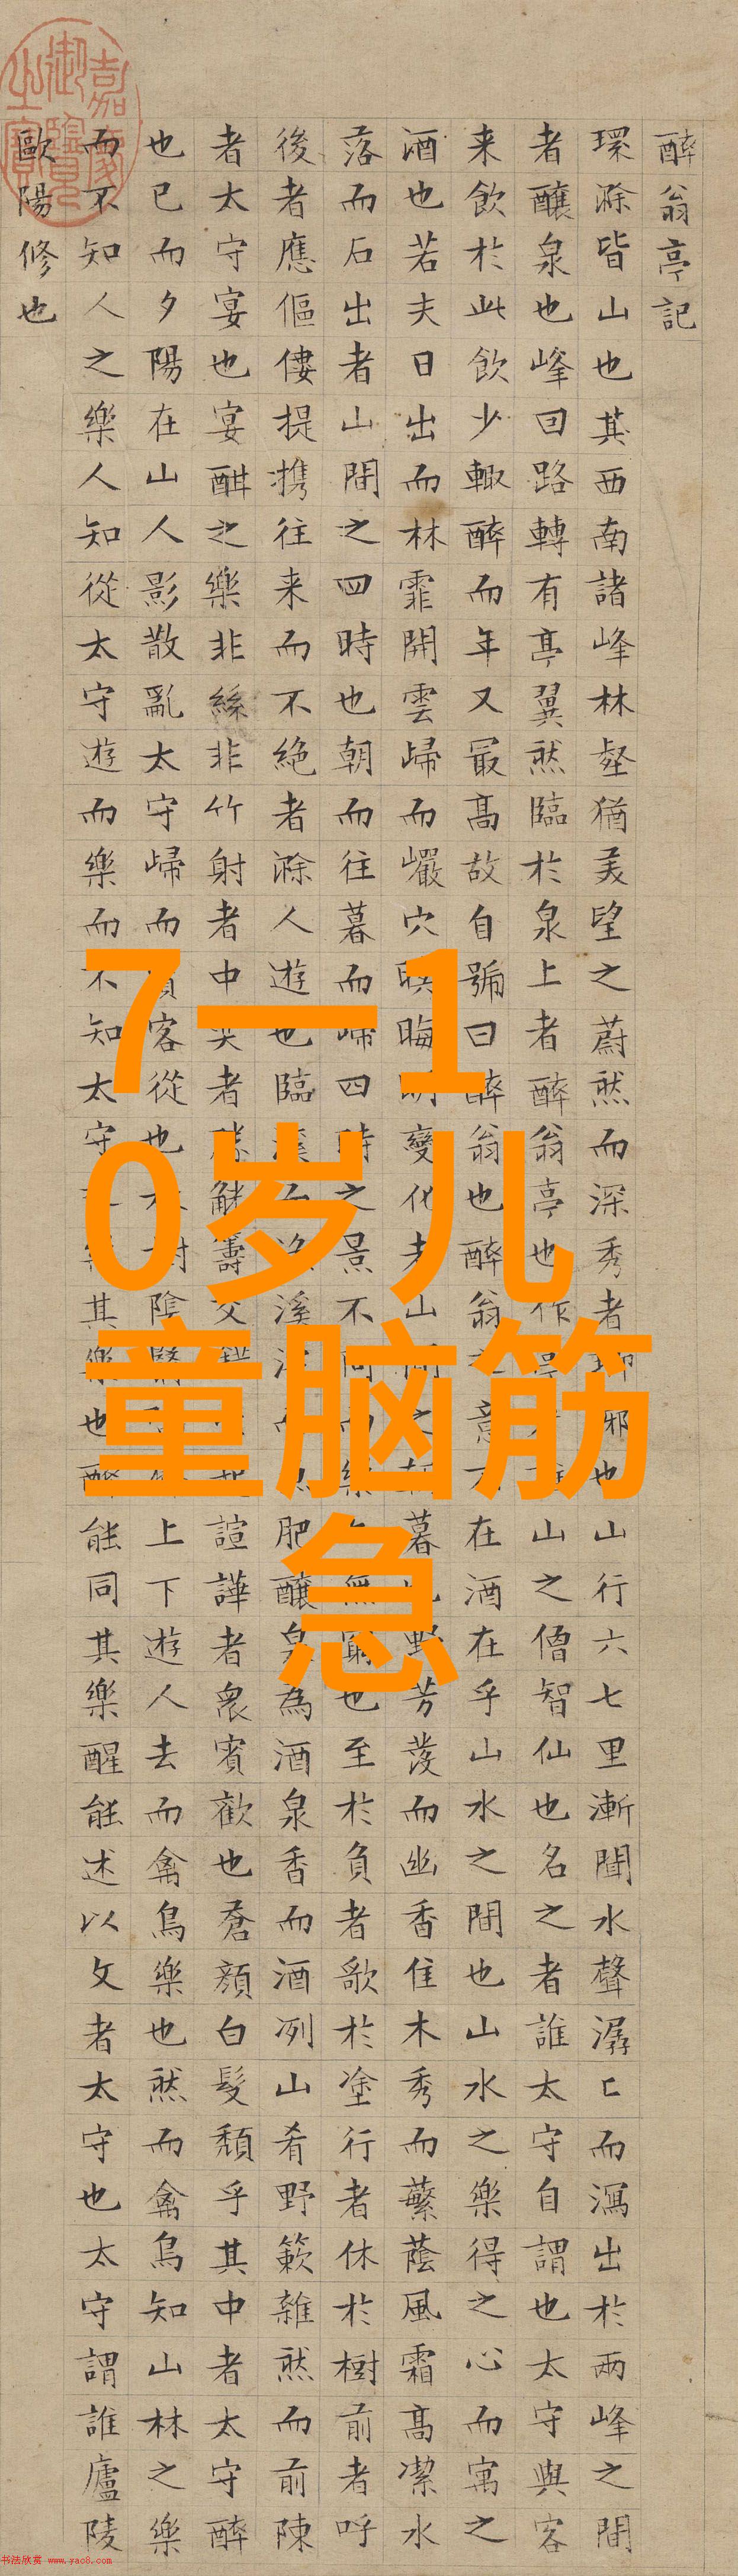 醉翁亭記
環滁皆山也其西南諸峰林壑猶美望之蔚然而深秀者邪也山行六七里漸聞水聲潺〻而瀉出於兩峰之間
者釀泉也峰回路轉有亭翼然臨於泉上者醉翁亭也作山之僧智仙也名之者誰太守自謂也太守與客
来飲於此飲少輙醉而年又最高故自號曰醉翁也醉翁意在酒在乎山水之間也山水之樂得之心而寓之
酒也若夫日出而林霏開雲歸而巖穴暝晦明變化者山暮也野芳發而幽香佳木秀而繁蔭風霜高潔水
落而石出者山間之四時也朝而往暮而歸四時之景不同而樂無窮也至於負者歌於塗行者休於樹前者呼
後者應傴僂提攜往来而不絶者滁人遊也臨溪而漁溪深而肥釀泉為酒泉香而酒冽山肴野簌雜然而前陳
者太守宴也宴酣之樂非絲非竹射者中奕者勝觥籌交錯起諠譁者衆賓歡也蒼顏白髮頹乎其中者太守醉
也已而夕陽在山人影散亂太守歸而賓客從也樹陰翳上下遊人去而禽鳥樂也然而禽鳥知山林之樂
而不知人之樂人知從太守遊而樂而不知太守之樂其樂也醉能同其樂醒能述以文者太守也太守謂誰廬陵
歐陽修也
嘉慶御覽之寶
7一1
0岁儿
童脑筋
急
书法欣赏 www.yac8.com